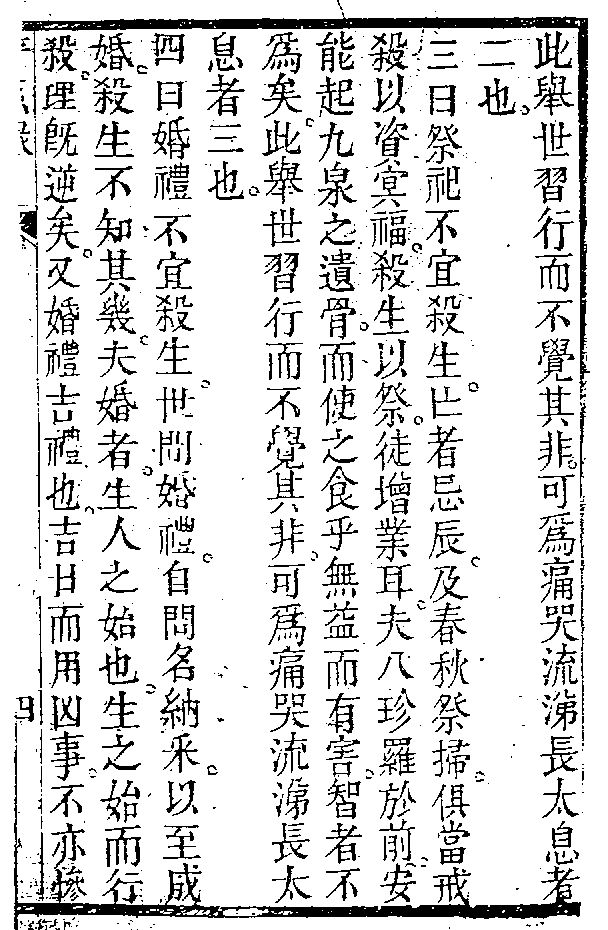 此舉世習行而不覺其非。可爲痛哭流涕長太息者
二也。
三曰祭祀不宜殺生。亡者忌辰。及春秋祭掃。俱當戒
殺以資冥福。殺生以祭。徒增業耳。夫八珍羅於前。安
能起九泉之遺骨。而使之食乎。無益而有害。智者不
爲矣。此舉世習行而不覺其非。可爲痛哭流涕長太
息者三也。
四曰婚禮不宜殺生。世間婚禮。自問名納采。以至成
婚。殺生不知其幾。夫婚者。生人之始也。生之始而行
殺。理既逆矣。又婚禮吉禮也。吉日而用凶事。不亦慘
四